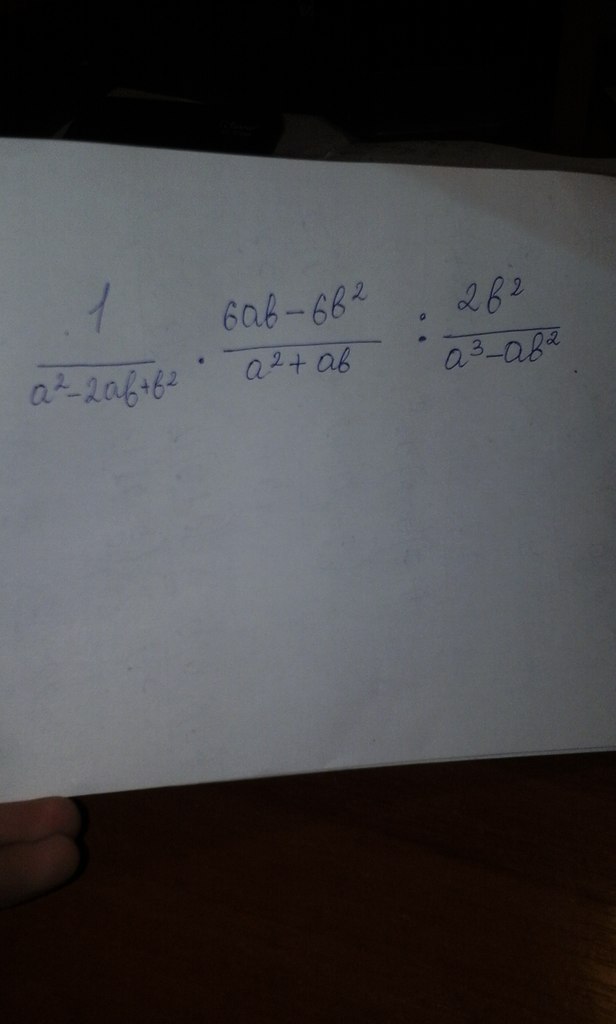 1/(a²-2ab+b²) · (6ab-6b²)/(a²+ab) : 2b²/(a³-ab²)